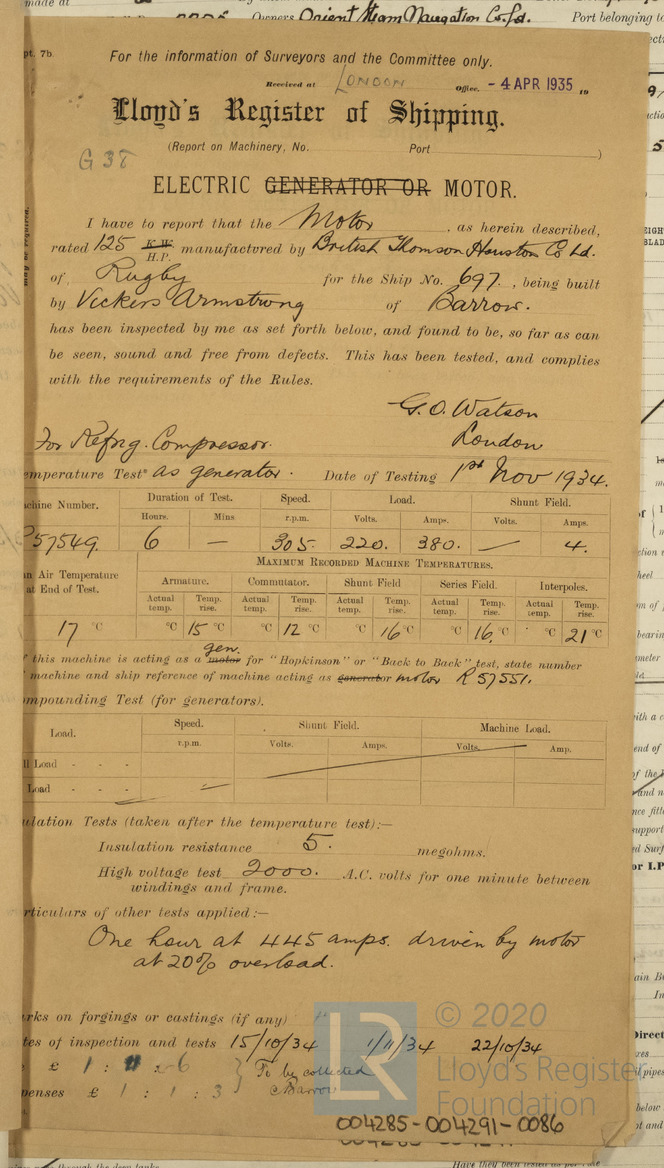 made at
Owners Orient Steam Navigation Co. Ltd.
Port belonging to
pt. 7b.
For the information of Surveyors and the Committee only.
Received at LONDON Office. - 4 APR 1935 19
Lloyd's Register of Shipping.
(Report on Machinery, No. Port )
G 38
ELECTRIC GENERATOR OR MOTOR.
I have to report that the Motor, as herein described,
rated 125 K.W. H.P. manufactvred by British Thomson Houston Co Ltd.
of, Rugby for the Ship No. 697., being built
by Vickers Armstrong of Barrow.
has been inspected by me as set forth below, and found to be, so far as can
be seen, sound and free from defects. This has been tested, and complies
with the requirements of the Rules.
G.O. Watson
For Refrig. Compressor. London
emperature Test* as generator. Date of Testing 1st Nov 1934.
chine Number. Duration of Test. Speed. Load. Shunt Field.
Hours. Mins r.p.m. Volts. Amps. Volts. Amps.
57549. 6 — 305. 220. 380. — 4.
MAXIMUM RECORDED MACHINE TEMPERATURES.
n Air Temperature at End of Test. Armature. Commutator. Shunt Field Series Field. Interpoles.
Actual temp. Temp. rise. Actual temp. Temp. rise. Actual temp. Temp. rise. Actual temp. Temp. rise. Actual temp. Temp. rise.
17 °C °C 15 °C °C 12 °C °C 16 °C °C 16 °C °C 21 °C
gen.
this machine is acting as a motor for "Hopkinson" or "Back to Back" test, state number
machine and ship reference of machine acting as generator motor R 57551.
mpounding Test (for generators).
Load. Speed. Shunt Field. Machine Load.
r.p.m. Volts. Amps. Volts. Amp.
ll Load - - -
Load - - -
ulation Tests (taken after the temperature test):—
Insulation resistance 5. megohms.
High voltage test 2000. A.C. volts for one minute between
windings and frame.
rticulars of other tests applied:—
One hour at 445 amps. driven by motor
at 20% overload.
rks on forgings or castings (if any) "
tes of inspection and tests 15/10/34 1/11/34 22/10/34
£ 1 : : 6 } To be collected
penses £ 1 : 1 : 3 } Barrow
LR
© 2020
Lloyd's Register
Foundation
004285-004291-0086